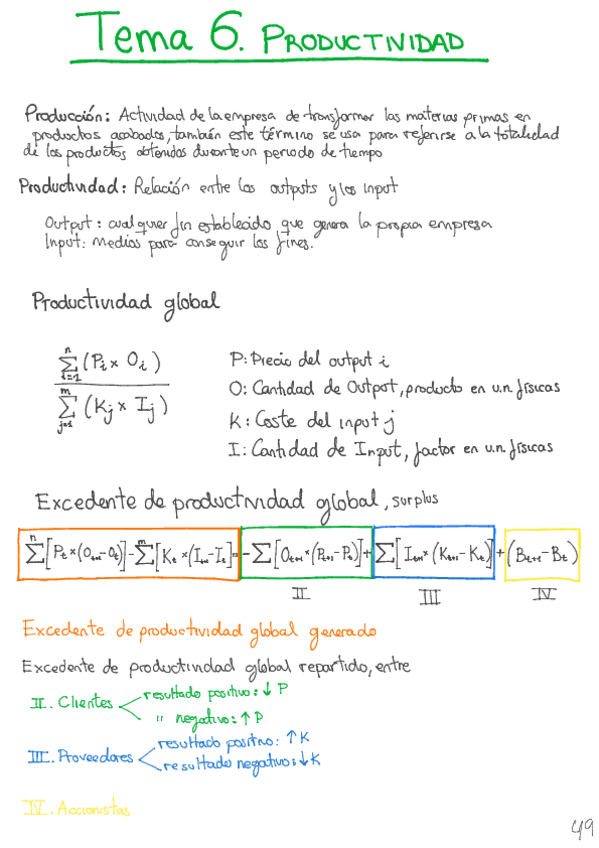 Tema 6. PRODUCTIVIDAD
Producción: Actividad de la empresa de transformar las materias primas en
productos acabados, también este término se usa para referirse a la totalidad
de los productos obtenidos durante un periodo de tiempo
Productividad: Relación entre los outputs y los input
Output: cualquier fin establecido que genera la propia empresa
Input: Medios para conseguir los fines.
Productividad global
n
∑ (Pi x Oi)
i=1
m
∑ (Kj x Ij)
j=1
P: Precio del output i
O: Cantidad de Output, producto en u.n físicas
K: Coste del input j
I: Cantidad de Input, factor en u.n físicas
Excedente de productividad global, surplus
n∑[Pt x (Ot+1-Ot)] - m∑[Kt x (It+1-It)] = -∑[Ot+1 x (Pt+1-Pt)] + ∑[It+1 x (Kt+1-Kt)] + (Bt+1-Bt)
II III IV
Excedente de productividad global generado
Excedente de productividad global repartido, entre
II. Clientes
resultado positivo: ↓ P
" negativo: ↑ P
III. Proveedores
resultado positivo: ↑ K
resultado negativo: ↓ K
IV. Accionistas
49